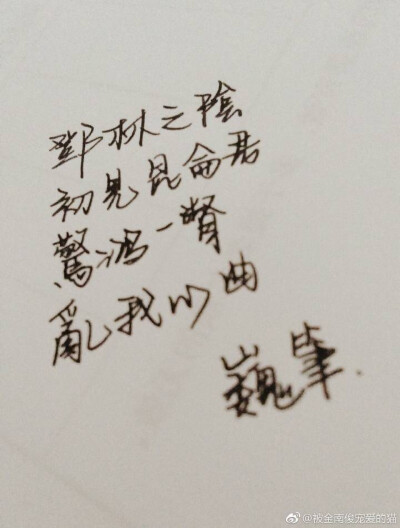 鄧林之陰
初見昆侖君
驚鴻一瞥
亂我心曲
巍筆.
@被金南俊宠爱的猫